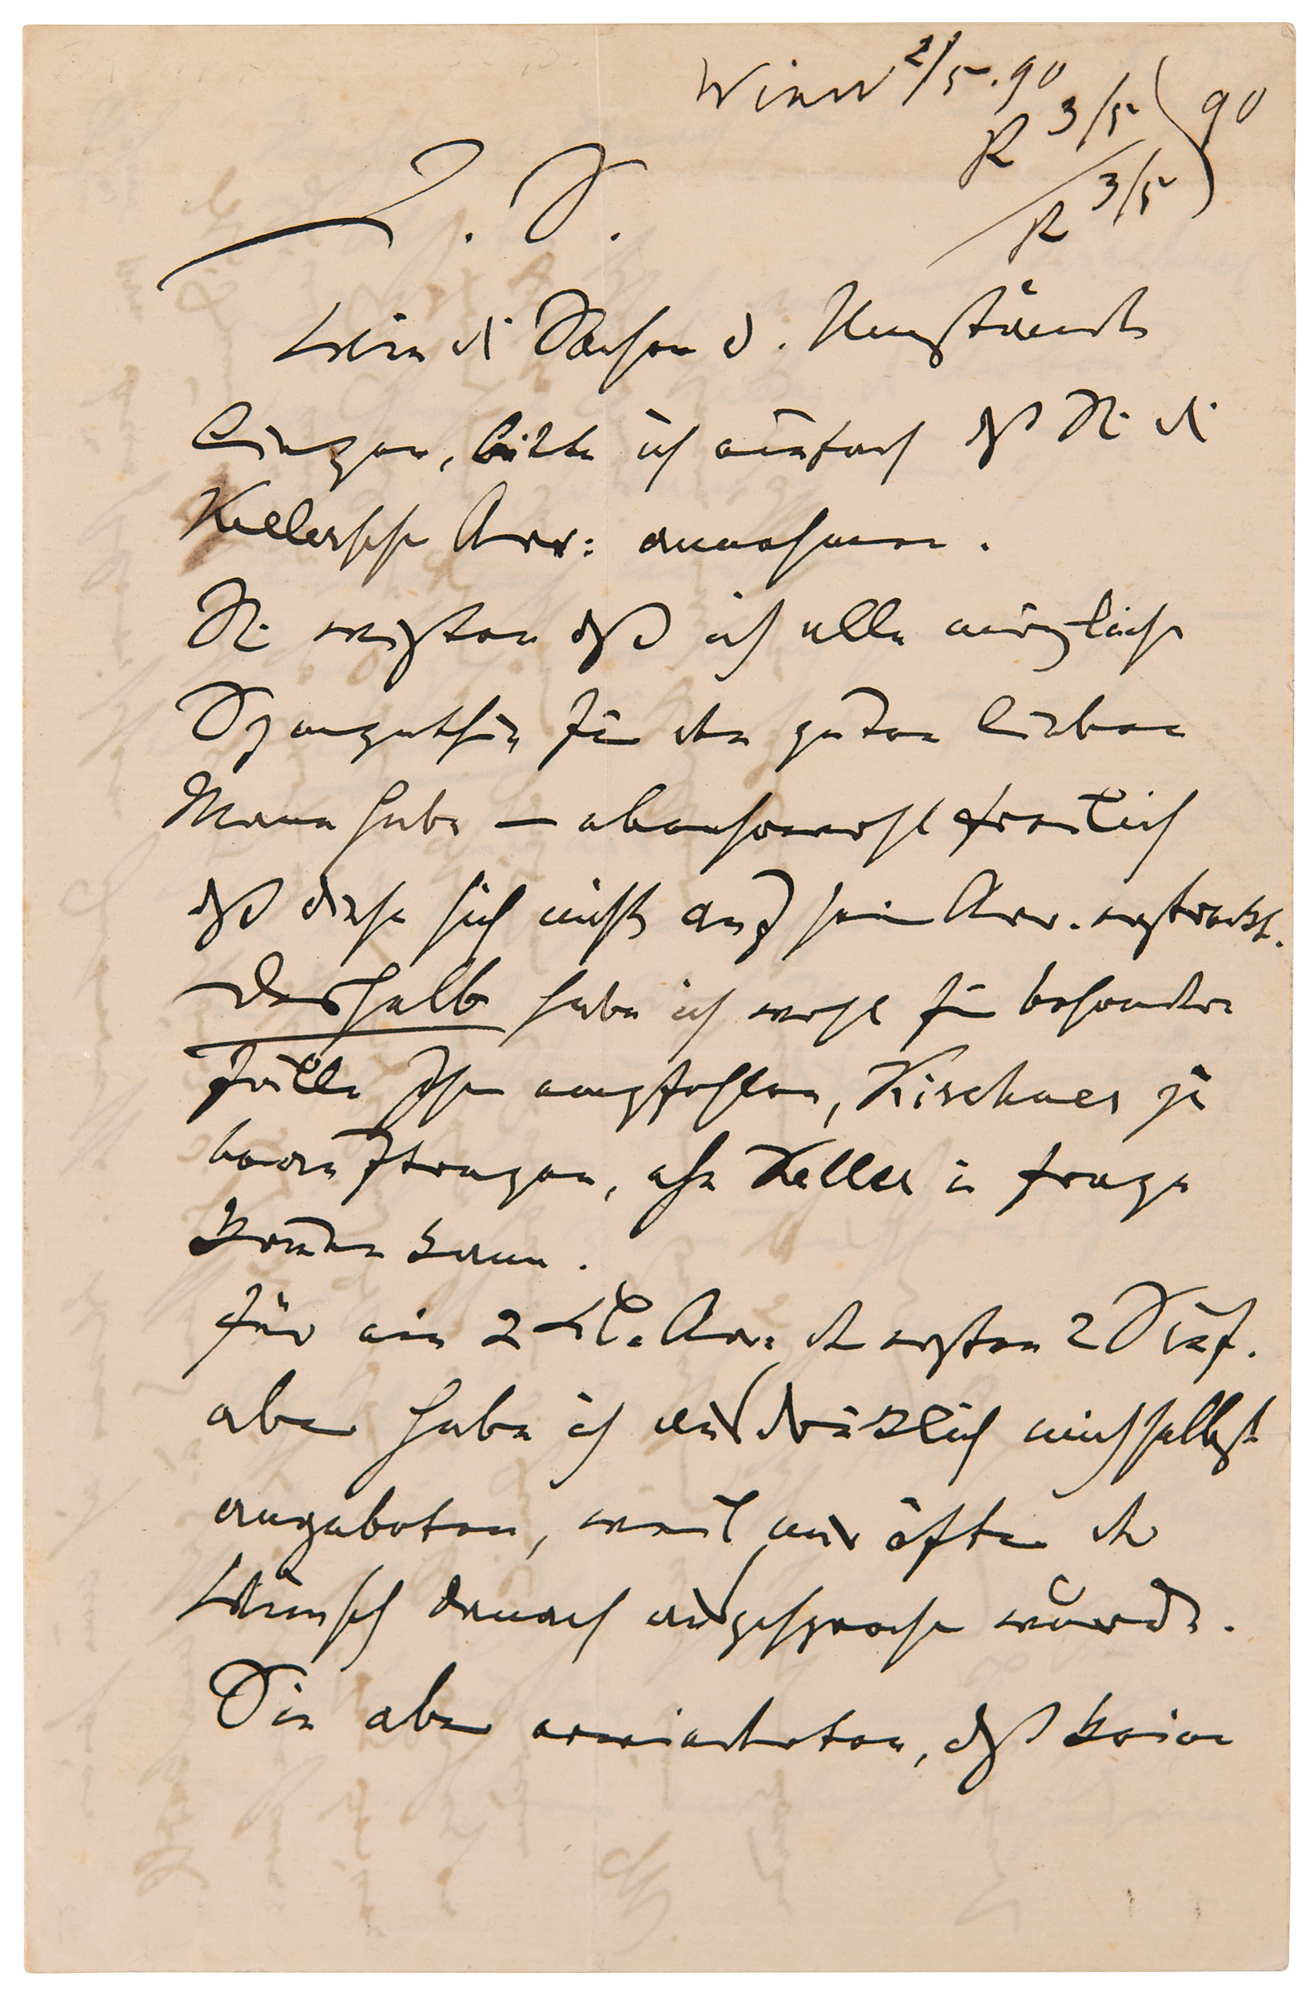 Wien 2/5.90
R 3/5 90
R 3/5
L. S.
Wie die Sachen u. Umstände
liegen, bitte ich einfach dß Sie die
Kellersche Arr: annehmen.
Sie wissen dß ich alle mögliche
Sympathie für den guten lieben
Mann habe — ebensowohl freilich
dß diese sich nicht auf sein Arr. erstreckt.
Deshalb habe ich wohl für besondere
Fälle Ihnen empfohlen, Kirchner zu
beauftragen, ehe Keller in Frage
kommen kann.
Für ein 2 Kl. Arr: der ersten 2 Sinf.
aber habe ich ausdrücklich mich selbst
angeboten, weil mir öfter der
Wunsch danach ausgesprochen wurde.
Sie aber erwiderten, dß keine